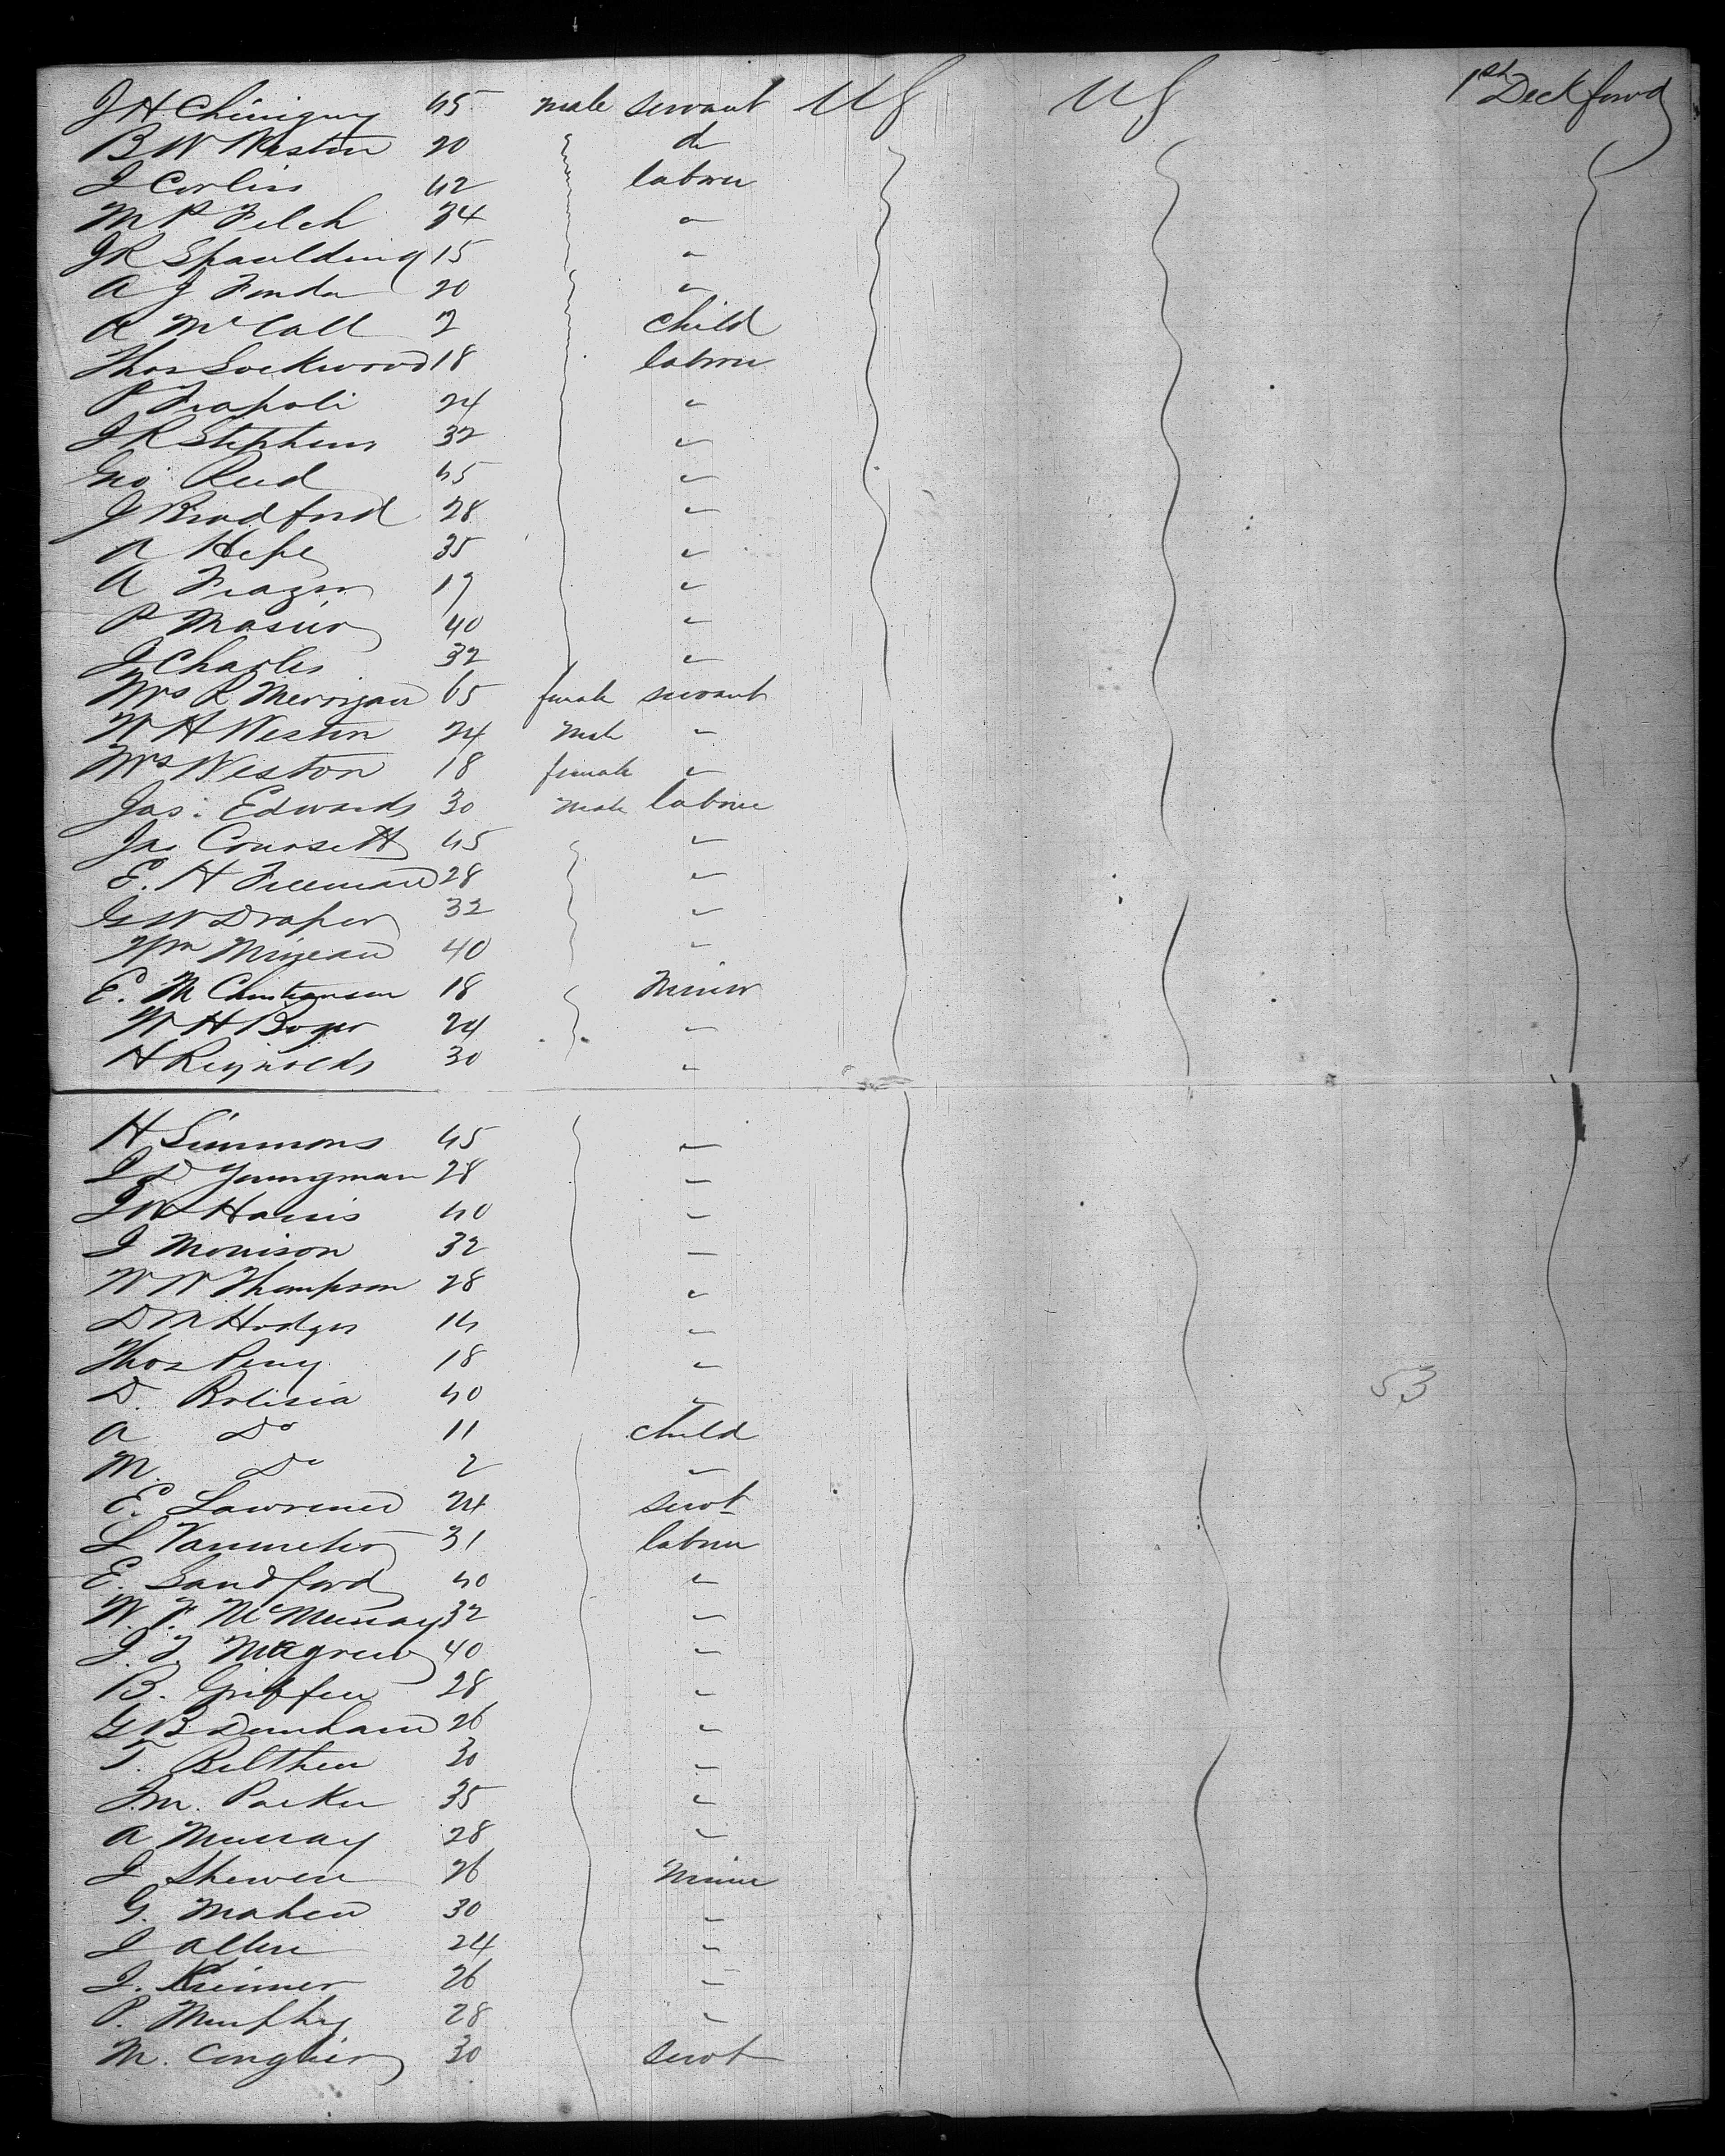 J H Chinigny 45 male servant US US 1st Deck forwd
B W Weston 20 do
J Corliss 42 labour
M P Filch 34 "
J R Spaulding 15 "
A J Fonda 20 "
A McCall 2 child
Thos Lockwood 18 labour
P Trapoli 24 "
J R Stephens 32 "
Geo Reed 45 "
J Bradford 28 "
A Hefe 35 "
A Frazer 19 "
P Masier 40 "
J Charles 32 "
Mrs R Merrigan 65 female servant
W H Weston 24 male "
Mrs Weston 18 female "
Jas: Edwards 30 male labour
Jas Coursett 45 "
E. H Freeman 28 "
G W Draper 32 "
Wm Mizeau 40 "
E. M Christiansen 18 Miner
W. H Boger 24 "
H Reynolds 30 "
H Simmons 45 "
J D Youngman 28 "
J W Harris 40 "
J Morrison 32 "
W W Thompson 28 "
D M Hodges 14 "
Thos Perry 18 "
D. Bolisia 40 "
A Do 11 child
M. Do 2 "
E. Lawrence 24 servt
L Vanmeter 31 labour
E. Sandford 40 "
W. F. McMurray 32 "
J. J. Magrew 40 "
B. Griffen 28 "
G B Dunham 26 "
T. Belthen 30 "
J. M. Parker 35 "
A Murray 28 "
J Shewen 26 Miner
G. Mahew 30 "
J Allen 24 "
J. Krimmer 26 "
P. Murphy 28 "
M. Conghier 30 servt
53